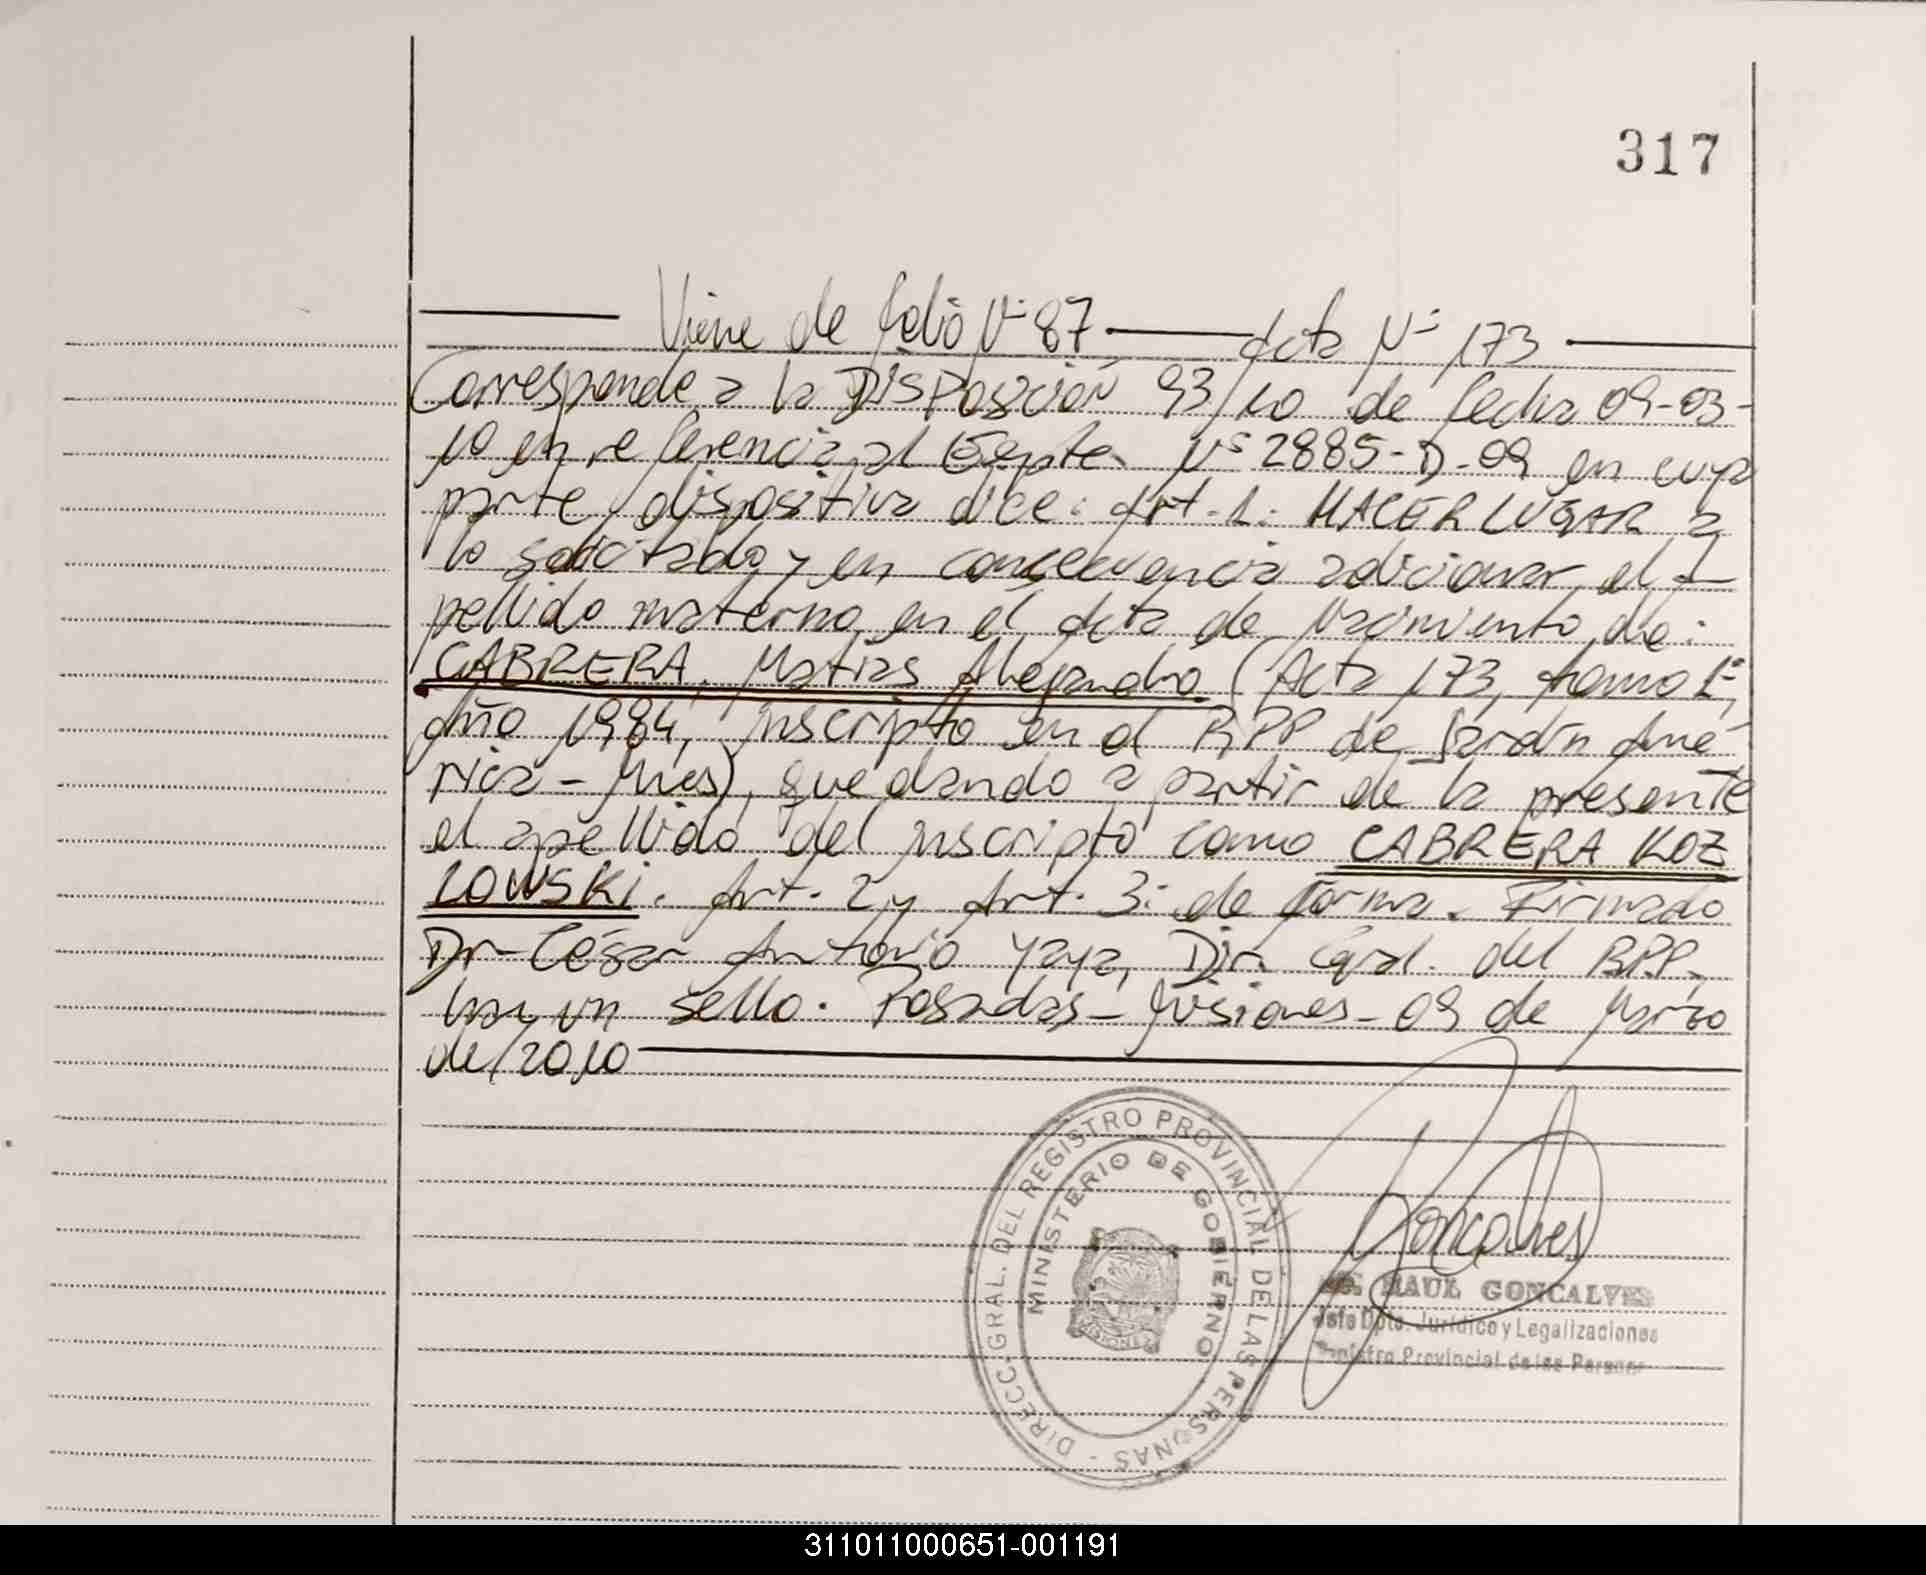 317
Viene de folio Nº 87 — Acta Nº 173
Corresponde a la DISPOSICIÓN 93/10 de fecha 09-03-
10 en referencia al Expte. Nº 2885-D-09 en cuya
parte dispositiva dice: Art. 1: HACER LUGAR a
lo solicitado y en consecuencia adicionar el A-
pellido materno en el Acta de Nacimiento de:
CABRERA, Matias Alejandro (Acta 173, tomo 1º,
Año 1984, inscripto en el RPP de Jardín Amé-
rica - Mnes), quedando a partir de la presente
el apellido del inscripto como CABRERA KOZ
LOWSKI. Art. 2 y Art. 3: de forma. Firmado
Dr. César Antonio Yaya, Dir. Gral. del RPP,
hay un sello. Posadas - Misiones - 09 de Marzo
de 2010
DIRECC. GRAL. DEL REGISTRO PROVINCIAL DE LAS PERSONAS -
MINISTERIO DE GOBIERNO
MISIONES
Goncalves
RAUL GONCALVES
Jefe Dpto. Jurídico y Legalizaciones
Registro Provincial de las Personas
311011000651-001191